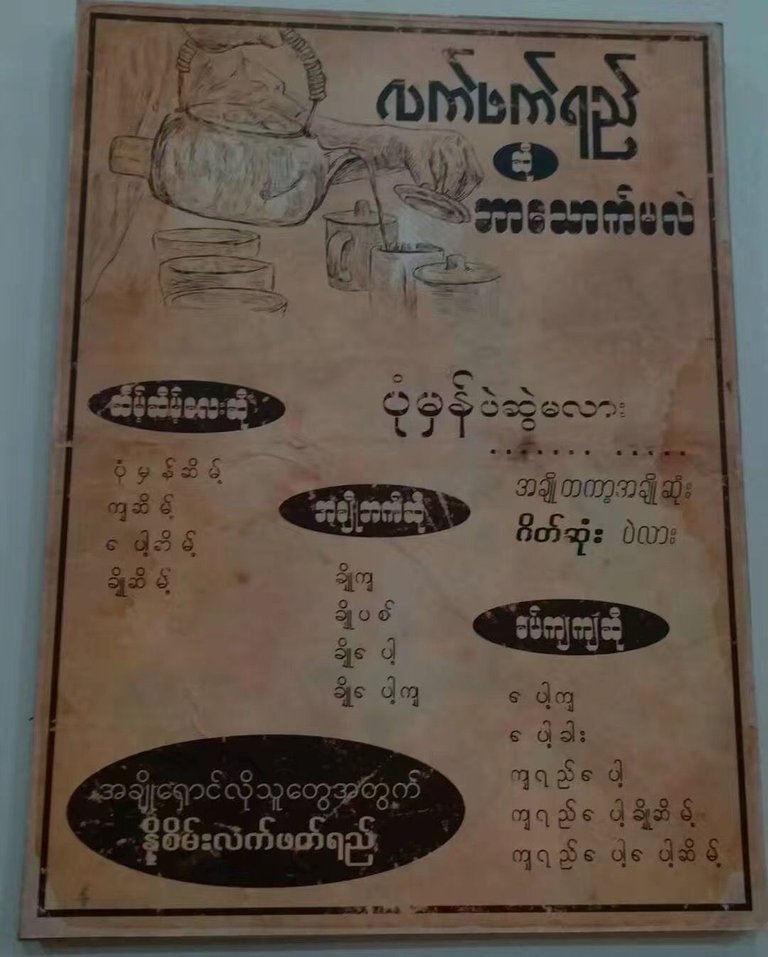 လက်ဖက်ရည်
ဆို
ဘာသောက်မလဲ
ပုံမှန်ပဲဆွဲမလား
....... .....
အချိုတကာ့အချိုဆုံး
ဂိတ်ဆုံး ပဲလား
ဆိမ့်ဆိမ့်လေးဆို
ပုံမှန်ဆိမ့်
ကျဆိမ့်
ပေါ့ဆိမ့်
ချိုဆိမ့်
အချိုဘက်ဆို
ချိုကျ
ချိုပစ်
ချိုပေါ့
ချိုပေါ့ကျ
ခပ်ကျကျဆို
ပေါ့ကျ
ပေါ့ခါး
ကျရည်ပေါ့
ကျရည်ပေါ့ချိုဆိမ့်
ကျရည်ပေါ့ပေါ့ဆိမ့်
အချိုရှောင်လိုသူတွေအတွက်
နို့စိမ်းလက်ဖတ်ရည်